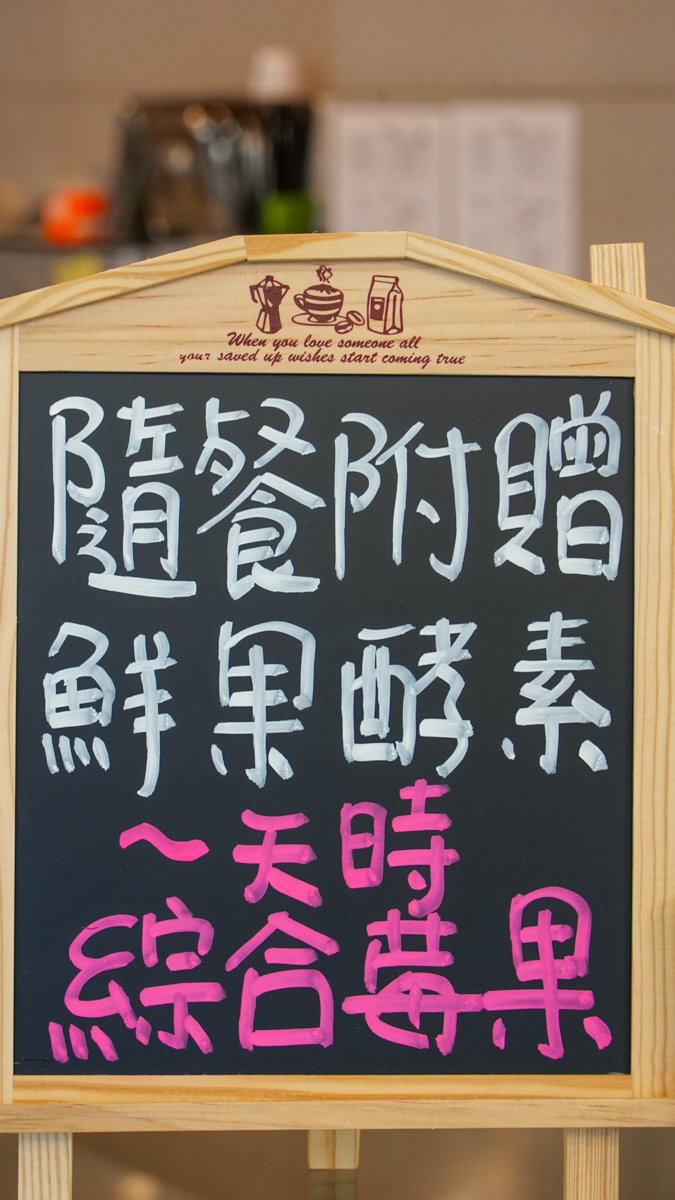 When you love someone all
your saved up wishes start coming true
隨餐附贈
鮮果酵素
~天時
綜合莓果